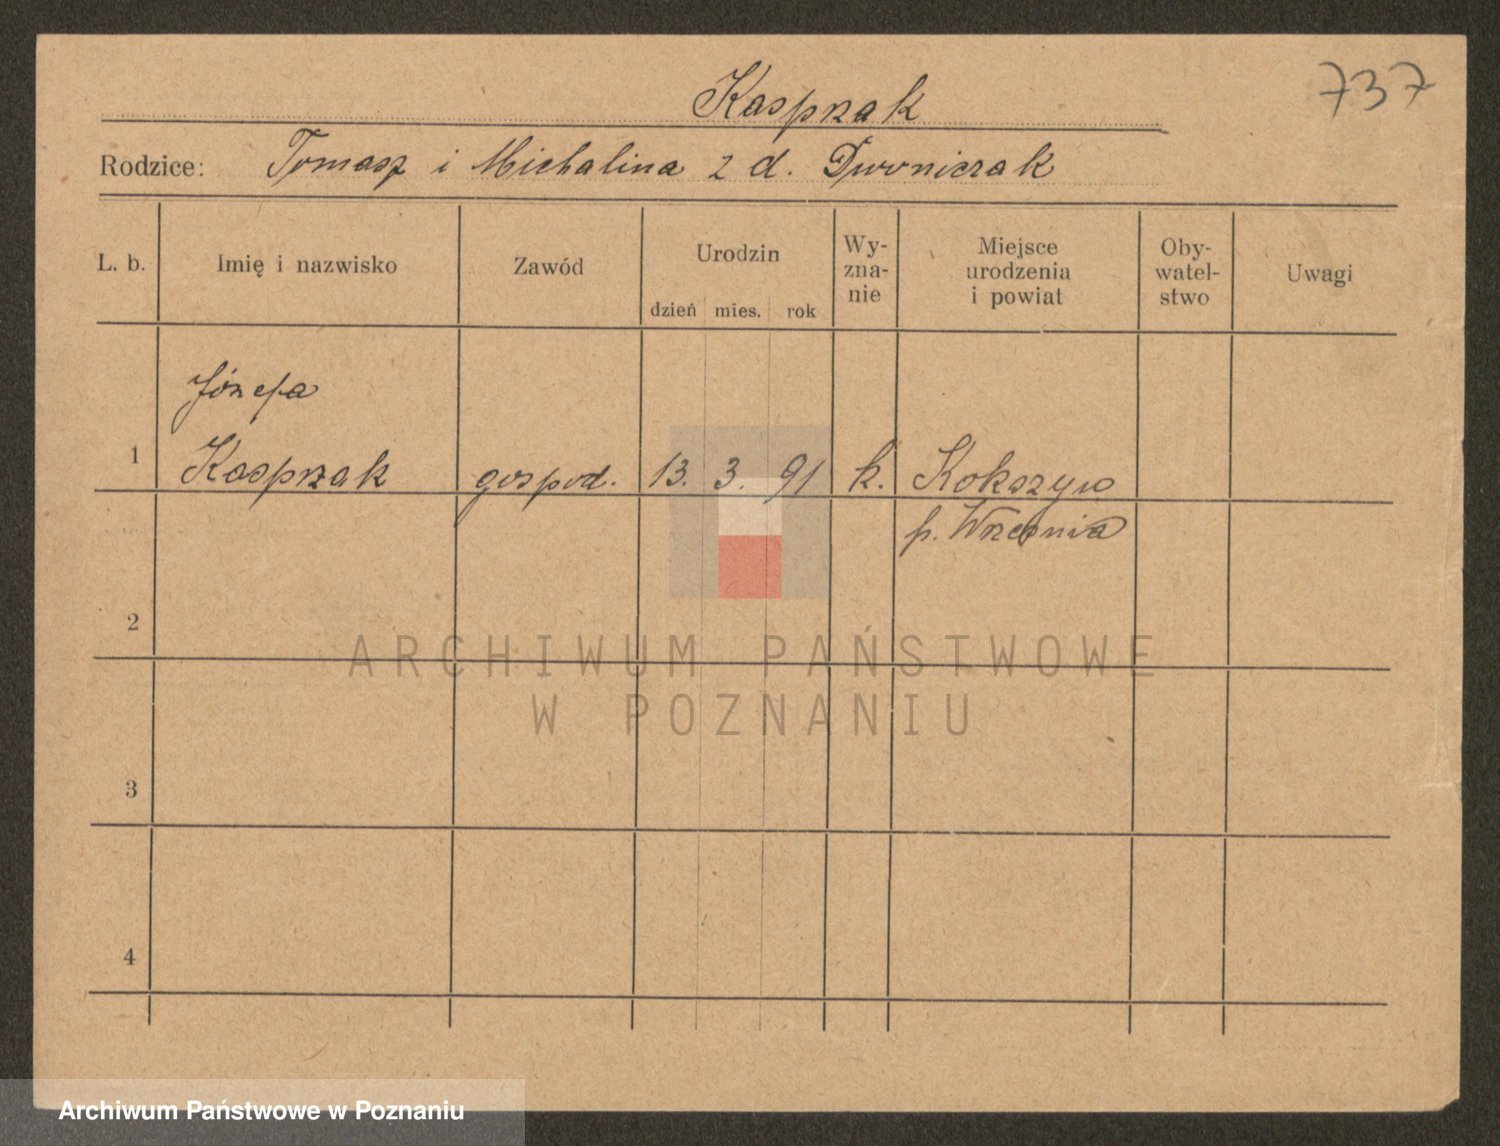 737
Kasprzak
Rodzice: Tomasz i Michalina z d. Dworniczak
L. b.
Imię i nazwisko
Zawód
Urodzin
dzień mies. rok
Wy-
zna-
nie
Miejsce
urodzenia
i powiat
Oby-
watel-
stwo
Uwagi
Józefa
1 Kasprzak gospod. 13. 3. 91 k. Kokszyw
p. Września
2
3
4
ARCHIWUM PAŃSTWOWE
W POZNANIU
Archiwum Państwowe w Poznaniu